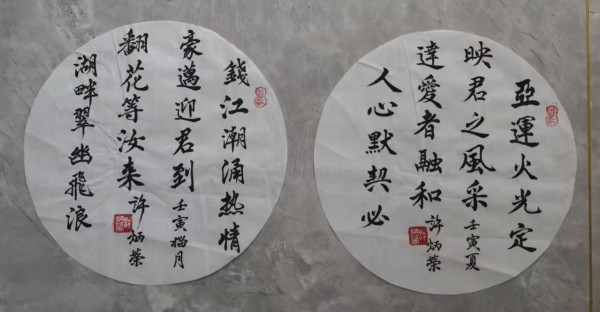 亞運火光定
映君之風采
壬寅夏
達愛者融和
許炳榮
人心默契必
錢江潮涌熱情
豪邁迎君到
壬寅榴月
翻花等汝来
許炳榮
湖畔翠幽飛浪